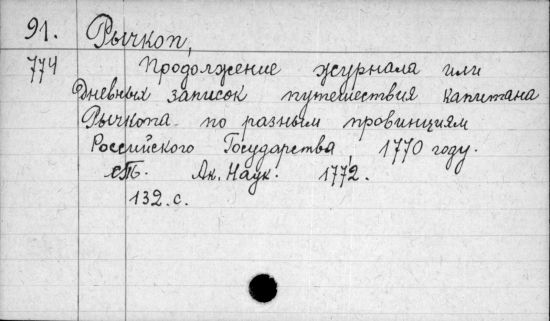 91. Рычкоп,
774 Продолжение журнала или
Дневных записок путешествия капитана
Рычкопа по разным провинциям
Российского Государства, 1770 году.
СПб. Ак. Наук. 1772.
132.с.